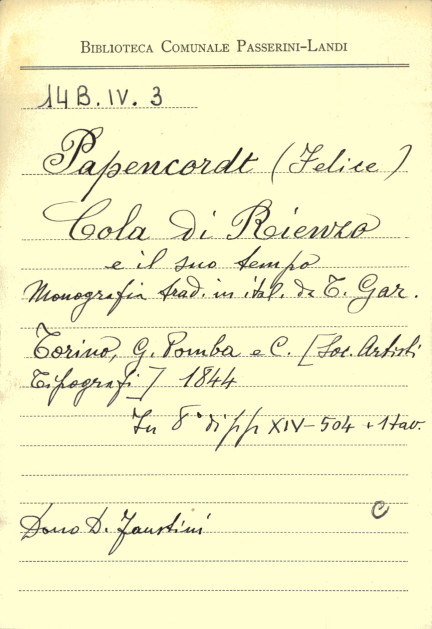 BIBLIOTECA COMUNALE PASSERINI-LANDI
14B.IV.3
Papencordt (Felice)
Cola di Rienzo
e il suo tempo
Monografia trad. in ital. da T. Gar.
Torino, G. Pomba e C. [Soc. Artisti
Tipografi] 1844
In 8° di pp XIV-504 + 1 tav.
C
Dono D. Faustini